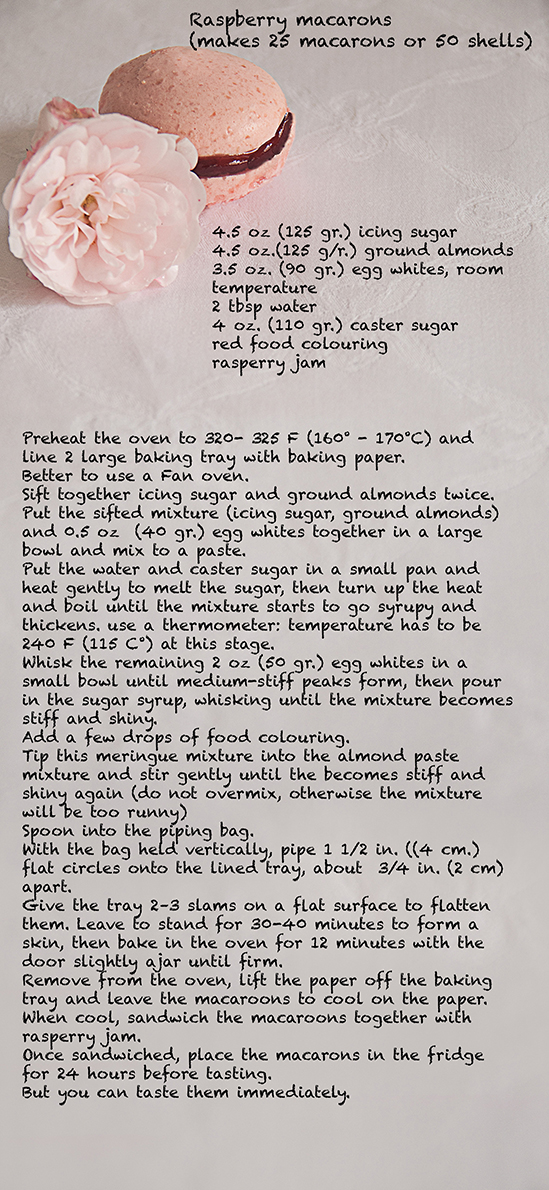 Raspberry macarons
(makes 25 macarons or 50 shells)
4.5 oz (125 gr.) icing sugar
4.5 oz.(125 g/r.) ground almonds
3.5 oz. (90 gr.) egg whites, room
temperature
2 tbsp water
4 oz. (110 gr.) caster sugar
red food colouring
rasperry jam
Preheat the oven to 320- 325 F (160° - 170°C) and
line 2 large baking tray with baking paper.
Better to use a Fan oven.
Sift together icing sugar and ground almonds twice.
Put the sifted mixture (icing sugar, ground almonds)
and 0.5 oz (40 gr.) egg whites together in a large
bowl and mix to a paste.
Put the water and caster sugar in a small pan and
heat gently to melt the sugar, then turn up the heat
and boil until the mixture starts to go syrupy and
thickens. use a thermometer: temperature has to be
240 F (115 C°) at this stage.
Whisk the remaining 2 oz (50 gr.) egg whites in a
small bowl until medium-stiff peaks form, then pour
in the sugar syrup, whisking until the mixture becomes
stiff and shiny.
Add a few drops of food colouring.
Tip this meringue mixture into the almond paste
mixture and stir gently until the becomes stiff and
shiny again (do not overmix, otherwise the mixture
will be too runny)
Spoon into the piping bag.
With the bag held vertically, pipe 1 1/2 in. ((4 cm.)
flat circles onto the lined tray, about 3/4 in. (2 cm)
apart.
Give the tray 2-3 slams on a flat surface to flatten
them. Leave to stand for 30-40 minutes to form a
skin, then bake in the oven for 12 minutes with the
door slightly ajar until firm.
Remove from the oven, lift the paper off the baking
tray and leave the macaroons to cool on the paper.
When cool, sandwich the macaroons together with
rasperry jam.
Once sandwiched, place the macarons in the fridge
for 24 hours before tasting.
But you can taste them immediately.